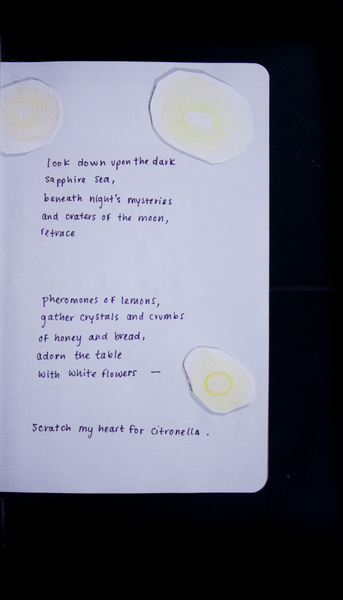 look down upon the dark
sapphire sea,
beneath night's mysteries
and craters of the moon,
retrace
pheromones of lemons,
gather crystals and crumbs
of honey and bread,
adorn the table
with white flowers —
Scratch my heart for Citronella.